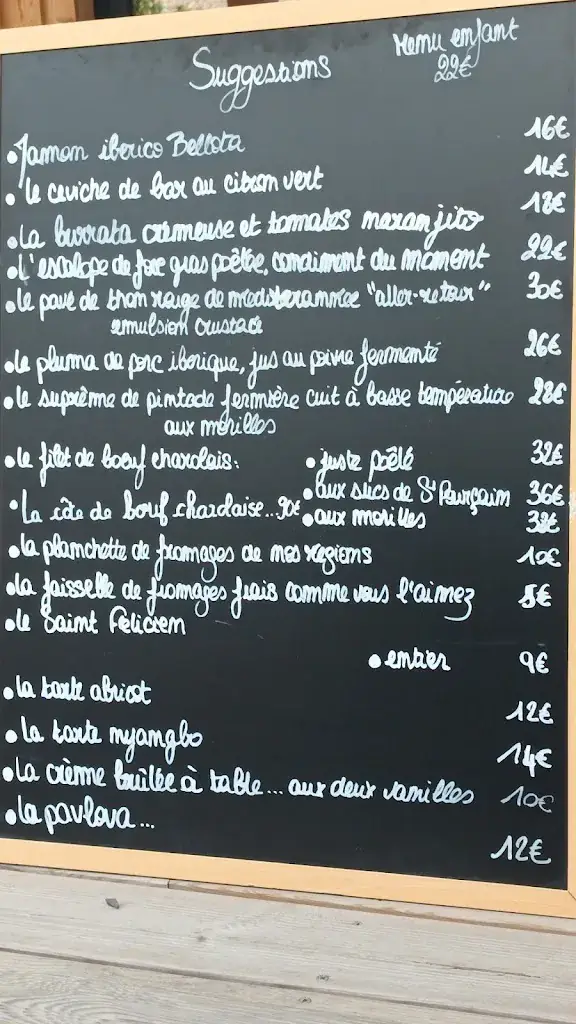 Suggestions
Menu enfant
22€
• Jamon iberico Bellota 16€
• le ceviche de bar au citron vert 14€
• La burrata crémeuse et tomates maranjito 18€
• L'escalope de foie gras poêlée, condiment du moment 22€
• le pavé de thon rouge de méditerrannée "aller-retour" 30€
emulsion crustacé
• le pluma de porc iberique, jus au poivre fermenté 26€
• le suprême de pintade fermière cuit à basse température 28€
aux morilles
• le filet de boeuf charolais: • juste poêlé 32€
• aux sucs de St Pourçain 36€
• La côte de boeuf charolaise..90€ • aux morilles 38€
• la planchette de fromages de nos régions 10€
• la faisselle de fromages frais comme vous l'aimez 8€
• le Saint Felicien
• entier 9€
• la tarte abricot 12€
• la tarte nyangbo 14€
• La crème brûlée à table... aux deux vanilles 10€
• la pavlova... 12€